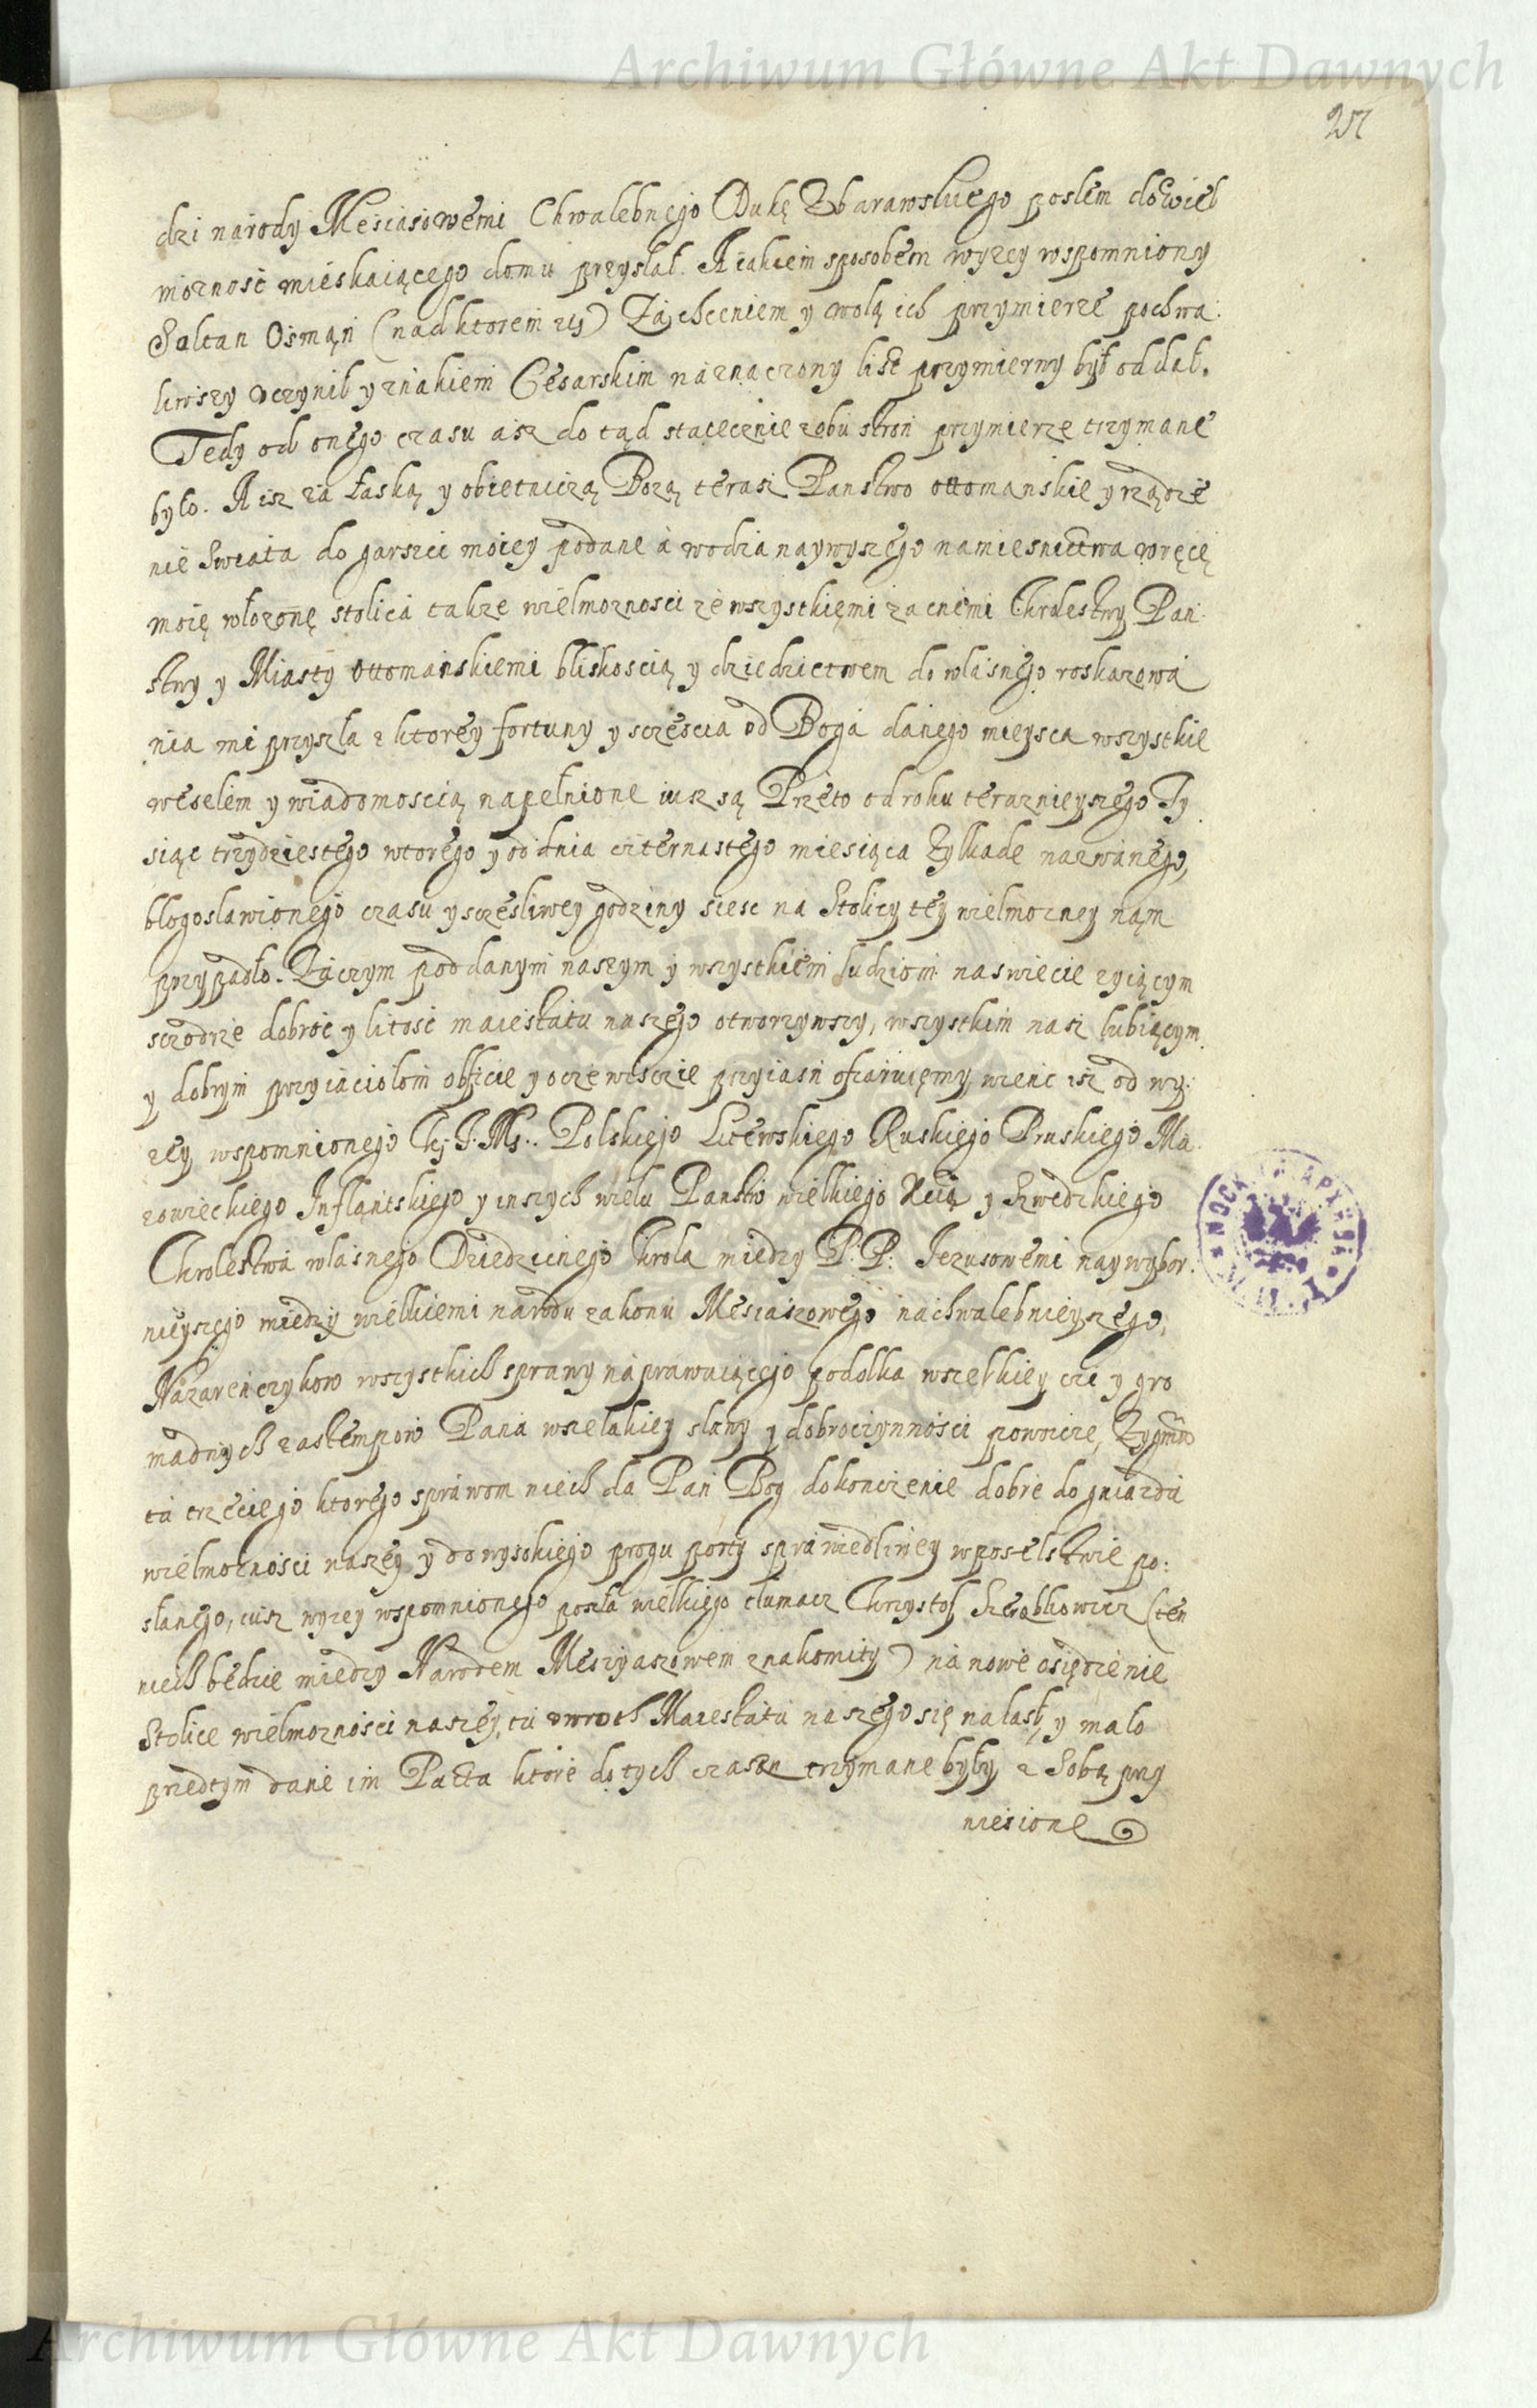 Archiwum Główne Akt Dawnych
257
dzi narody Mesiasowemi Chwalebnego Dukę Zbarawskiego posłem do wiel
możnosc mieskaiącego domu przysłał. A iakiem sposobem wyzey wspomniony
Saltan Osmąn (nad ktorem ) Za chceniem y wolą ich przymierze pochwa:
liwszy uczynił y znakiem Cesarskim náznaczony list przymierny był oddał.
Tedy od onego czasu asz do tąd statecznie z obu stron przymierze trzymane
było. A isz za łaską y obietniczą Bozą terasz Panstwo ottomanskie y rządze
nie Swiata do garszci moiey podane à wodza naywyszego namiesnictwa w ręcę
moię włozonę stolica takze wielmoznosci ze wszystkięmi zacnemi Chrolestwy Pan
stwy y Miasty ottomanskiemi bliskoscią y dziedzictwem do własnego roskazowa
nia mi przyszła z ktorey fortuny y scżescia od Boga danego mieysca wszystkie
weselem y wiadomoscią napełnione iusz są Przeto od roku terazniejszego Ty
siąc trzydziestego wtorego y od dnia czternastego miesiąca Zylkade nazwanego,
błogosławionego czasu y scżesliwey godziny siesc na Stolicy tey wielmozney nąm
przypadło. Zaczym poddanym naszym y wszystkiem ludziom na swiecie zyiącym
sczodrze dobroć y litosc maiestatu naszego otworzywszy, wszystkim nasz lubiącym
y dobrym przyiaciołom obficie y oczewiscie przyiasń ofiaruięmy, wienc isz od wy:
zey wspomnionego K: J: Ms:. Polskiego Litewskiego Ruskiego Pruskiego Ma
zowieckiego Inflantskiego y inszych wielu Panstw wielkiego Xcią y Szwedzkiego
Chrolestwa własnego Dziedzicnego Krola miedzy P. P. Jezusowemi naywybor:
nieyszego miedzy wielkiemi narodu zakonu Mesiaszowego nachwalebnieyszego,
Nazarenczykow wszystkich sprawy náprawuiącego podołka wszelkiey czci y gro
madnych zastempow Pana wszelakiey sławy y dobroczynnosci powoicie, Zygmun
ta trzeciego ktorego sprawom niech da Pan Bog dokonczenie dobre do gniazda
wielmoznosci naszey y do wysokiego progu porty sprawiedliwey w poselstwie po:
słanego, iusz wyzey wspomnionego posła wielkiego tłumacz Chrzystof Szerębkowicz (ten
niech bedzie miedzy Narodem Meszyaszowem znakomity) na nowe osiędzenie
Stolice wielmoznosci naszey, tu wrotch Maiestatu naszego się nalasł, y mało
przedtym dane im Pacta ktore do tych czasow trzymane były z Sobą przy
niesione
Archiwum Główne Akt Dawnych